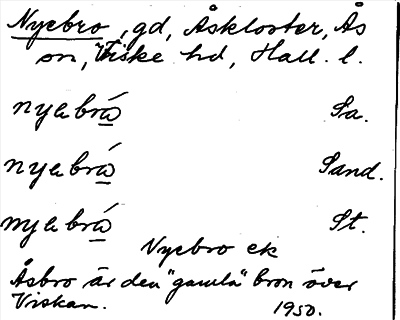 Nyebro, gd, Åskloster, Ås
sn, Viske hd, Hall. l.
nyabrå Sa.
nyabrå Sand.
nyabrå St.
Nyebro ek
Åsbro är den "gamla" bron över
Viskan. 1950.